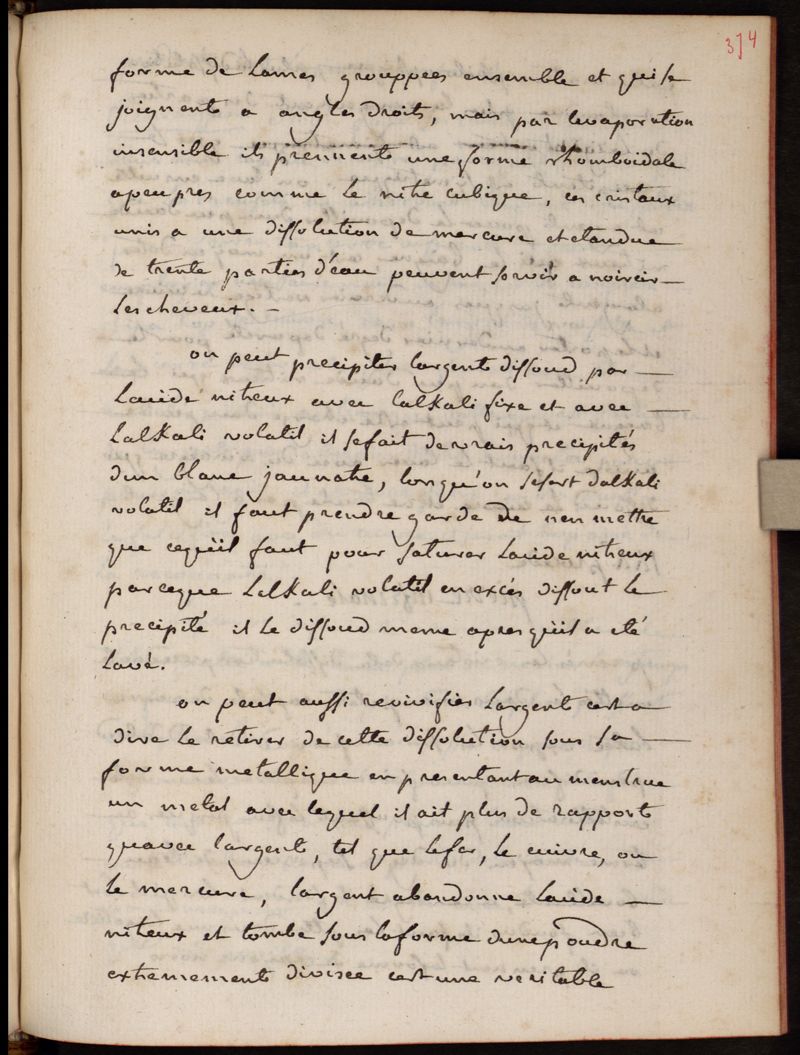 374
forme de Lames grouppees ensemble et qui se
joignent a angles Droits, mais par levaporation
insensible ils prennent une forme rhomboidale
apeu pres comme le nitre cubique, ces cristaux
unis a une dissolution de mercure et etandue
de trente parties d'eau peuvent servir a noircir
les cheveux. —
on peut precipiter largent dissoud par —
Lacide nitreux avec lalkali fixe et avec —
Lalkali volatil il se fait de vrais precipités
dun blanc jaunatre, lorsqu'on sesert dalkali
volatil il faut prendre garde de nen mettre
que cequ'il faut pour saturer Lacide nitreux
parceque Lalkali volatil en excés dissout le
precipité il le dissoud meme apres qu'il a eté
lavé.
on peut aussi revivifier Largent cest a
dire le retirer de cette dissolution sous sa —
forme metallique en presentant au menstrue
un metal avec lequel il ait plus de rapport
quavec largent, tel que lefer, le cuivre, ou
le mercure, largent abandonne Lacide —
nitreux et tombe sous laforme dune poudre
extremement divisee cest une veritable